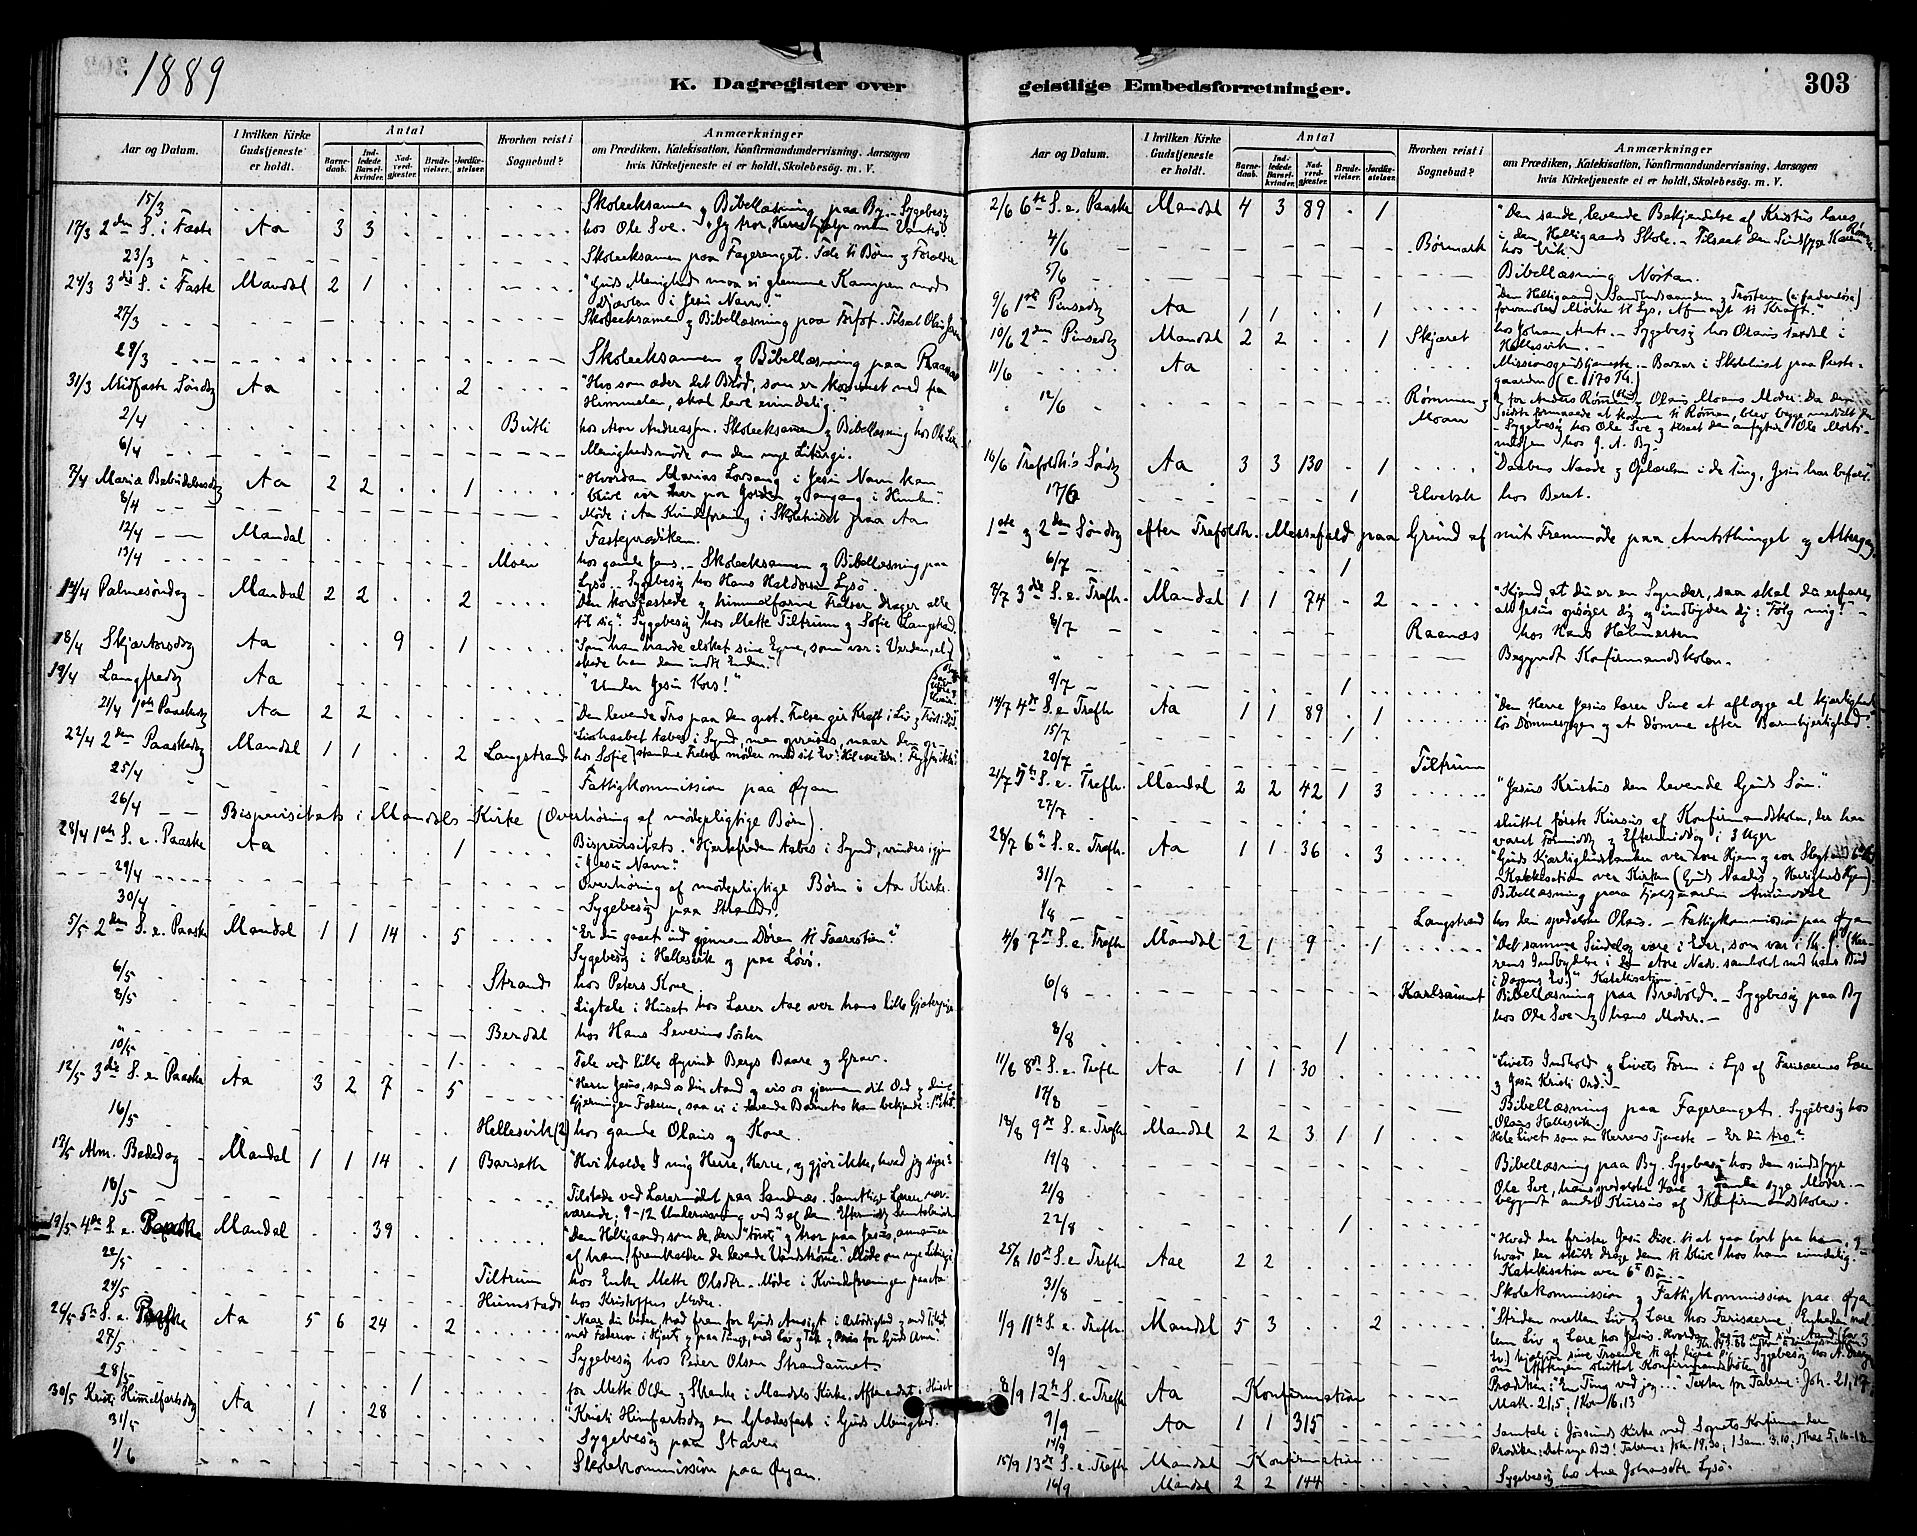 1889
K. Dagregister over
geistlige Embedsforretninger.
303
Aar og Datum.
I hvilken Kirke Gudstjeneste er holdt.
Antal
Barne-daab.
Ind-ledede Barsel-kvinder.
Nad-verd-gjæster.
Brude-vielser.
Jordfæ-stelser.
Hvorhen reist i Sognebud?
Anmærkninger
om Prædiken, Katekisation, Konfirmandundervisning, Aarsagen
hvis Kirketjeneste ei er holdt, Skolebesøg. m. V.
15/3 Skoleeksamen & Bibellæsning paa By. Sygebesøg
17/3 2den S. i Faste Aa 3 3 hos Ole Sve. "Jeg tror, Herre, hjælp min Vantro."
23/3 Skoleeksamen paa Fagerenget. Tale til Børn & Forældre
24/3 3die S. i Faste Mandal 2 1 "Guds Menighed maa ei glemme Kampen mod
Djævlen i Jesu Navn."
27/3 Skoleeksamen & Bibellæsning paa
28/3 Skoleeksamen & Bibellæsning paa Raanæs
31/3 Midfaste Søndag Aa 2 "Hvo som æder det Brød, som er kommet ned fra
Himmelen, skal leve evindelig."
2/4 Butli hos Aron Andreassen. Skoleeksamen & Bibellæsning hos
6/4 Menighedsmøde om den nye Liturgi.
7/4 Maria Bebudelsesdag Aa 2 2 1 "Hvordan Marias Lovsang i Jesu Navn kan
blive vor her paa Jorden & engang i Himlen."
8/4 Møde i Aa Kvindeforening i Skolehuset paa Aa
12/4 Mandal Fasteprædiken.
13/4 Moen hos gamle Jens. Skoleeksamen & Bibellæsning paa
Lysø. Sygebesøg hos Hans Haldorsen Lysø.
14/4 Palmesøndag Mandal 2 2 2 "Den korsfæstede & himmelfarne Frelser drager alle
til sig". Sygebesøg hos Mette Tiltrum & Sofie Langstrand
18/4 Skjærtorsdag Aa 9 1 "Som han havde elsket sine Egne, som var i Verden, el-
skede han dem indtil Enden."
19/4 Langfredag Aa "Under Jesu Kors!"
21/4 1ste Paaskedag Aa 2 2 "Den levende Tro paa den opst. Frelser gir Kraft i Liv &
22/4 2den Paaskedag Mandal 1 1 2 Langstrand "Livshaabet tabes i Synd, men opreises, naar den op-
hos Sofie standne Frelser møder med sit
25/4 Fattigkommission paa Øyan
26/4 Bispevisitats i Mandals Kirke (Overhøring af mødepligtige Børn).
28/4 1ste S. e. Paaske Aa 1 Bispevisitats. "Hjertefreden tabes i Synd, vindes igjen
i Jesu Navn."
29/4 Overhøring af mødepligtige Børn i Aa Kirke.
30/4 Sygebesøg paa Strand.
5/5 2den S. e. Paaske Mandal 1 1 14 5 "Er du gaaet ind gjennem Døren til Faarestien?"
Sygebesøg i Hellesvik & paa Løvø.
6/5 Strand hos Peters Kone
8/5 Ligtale i Huset hos Lærer Aae over hans lille
" Berdal hos Hans Severins Søster
10/5 1 Tale ved lille Øyvind Bergs Baare & Grav.
12/5 3die S. e. Paaske Aa 3 2 7 5 "Herre Jesus, send os din Aand & vis os gjennem dit Ord & dine
Gjerninger Faderen, saa vi i levende Barnetro kan bekjende:
16/5 Hellesvik (2) hos gamle Olaus & Kone.
17/5 Alm. Bededag Mandal 1 1 14 1 Barsæth "Hvi kalde I mig Herre, Herre, & gjør ikke, hvad jeg siger?"
18/5 Tilstede ved Lærermødet paa Sandnæs. Samtlige Lærere nær-
værende; 9-12 Undervisning ved 3 af dem.
19/5 4de S. e. Paaske Mandal 39 "Den Helligaand, som de, der "tørste" & tror paa Jesus, annammer
af ham, fremkalder de levende Vandstrømme." Møde om nye Liturgi
22/5 Tiltrum hos Enke Mette Olsdtr. Møde i Kvindeforeningen paa Aa
24/5 Humstad hos Kristoffers Moder.
26/5 5te S. e. Paaske Aa 5 6 24 2 "Naar du beder, træd frem for Guds Ansigt i Ærbødighed &
27/5 Sygebesøg hos Peder Olsen Strandaunet
28/5 1 for Mette Olden & i Mandals Kirke.
30/5 Kristi Himmelfartsdag Aa 1 28 "Kristi Himfartsdag en Glædesfest i Guds Menighed."
31/5 Sygebesøg paa Staven
1/6 Skolekommission paa Øyan.
Aar og Datum.
I hvilken Kirke Gudstjeneste er holdt.
Antal
Barne-daab.
Ind-ledede Barsel-kvinder.
Nad-verd-gjæster.
Brude-vielser.
Jordfæ-stelser.
Hvorhen reist i Sognebud?
Anmærkninger
om Prædiken, Katekisation, Konfirmandundervisning, Aarsagen
hvis Kirketjeneste ei er holdt, Skolebesøg. m. V.
2/6 6te S. e. Paaske Mandal 4 3 89 1 "Den sande, levende Bekjendelse af Kristus læres
i den Helligaands Skole. Tilseet den Sindssyge Karen
4/6 Børmark hos Erik.
5/6 Bibellæsning Nortan.
9/6 1ste Pinsedag Aa 1 1 1 "Den Helligaand, Sandhedsaanden & Trøsteren (ei faderløse)
forvandler Mørke til Lys, Afmagt til Kraft."
10/6 2den Pinsedag Mandal 2 2 1 Skjæret hos Johan Arnt. Sygebesøg hos Olaus i
Hellesvik.
11/6 Aa Missionsgudstjeneste. Bazar i Skolehuset paa Præste-
gaarden (c. 170 Kr.)
12/6 Rømmen & Moan for Anders Rømmen & Olaus Moans Moder. Da den
sidste formaaede at komme til Rømmen, blev begge
Sygebesøg hos Ole Sve & tilseet den Ole Morti-
nussen hos J. A. By.
16/6 Trefoldh's Søndag Aa 3 3 130 1 "Daabens Naade & Opladelsen i de Ting, Jesus har befalet"
17/6 1 Elvebak hos Beret.
1ste & 2den Søndag efter Trefoldh. Messefald paa Grund af mit Fremmøde paa Amtsthinget & Altergang
6/7 1
7/7 3die S. e. Trefh. Mandal 1 1 74 2 "Kjend, at du er en Synder, saa skal du erfare,
at Jesus opsøger dig & indbyder dig: Følg mig!"
8/7 Raanæs hos Hans Halmersen
" Begyndt Konfirmandskolen.
9/7 1
14/7 4de S. e. Trefh Aa 1 1 89 1 "Den Herre Jesus lærer Sine at aflægge al kjærligheds-
løs Dømmesyge & at dømme efter Barmhjertighed."
15/7 1
20/7 Tiltrum
21/7 5te S. e. Trefh. Mandal 2 2 42 1 3 "Jesus Kristus den levende Guds Søn."
27/7 sluttet første Kursus af Konfirmandskolen, der har
varet Formiddag & Eftermiddag i 3 Uger
28/7 6te S. e. Trefh. Aa 1 1 36 3 "Guds Kjærlighedstanker over vore Hjem & vor
Katekisation over Kirken (Guds Naades & Herligheds Hjem)
31/7 Bibellæsning paa Fjelgaarden Aunundal
1/8 Langstrand hos den spedalske Olaus. Fattigkommission paa Øyan
4/8 7de S. e. Trefh Mandal 2 1 9 1 "Det samme Sindelag være i Eder, som var i Kr. J. (Her-
rens Indbydelse i den store Nadv. sammenholdt med hans Bud
i Dagens Ev.)" Katekisation
6/8 Karlsaunet Bibellæsning paa Bredvold. Sygebesøg paa By
hos Ole Sve & hans Moder.
8/8 1
11/8 8de S. e. Trefh Aa 1 1 30 "Livets Indhold & Livets Form i Lys af Farisæernes Lære
& Jesu Kristi Ord.
17/8 Bibellæsning paa Fagerenget. Sygebesøg hos
Olaus Hellesvik.
18/8 9de S. e. Trefh Mandal 2 2 3 1 1 Hele Livet som en Herrens Tjeneste - Er du tro?
19/8 Bibellæsning paa By. Sygebesøg hos den sindssyge
21/8 Ole Sve, hans spedalske Kone & gamle syge Moder.
begyndt andet Kursus af Konfirmandskolen.
22/8 1
25/8 10de S. e. Trefh Aae 2 2 "Hvad der frister Jesu Disc. til at gaa bort fra ham, &
hvad der skulde drage dem til blive hos ham evindelig."
Katekisation over 6te Bøn
31/8 Skolekommission & Fattigkommission paa Øyan
1/9 11te S. e. Trefh Mandal 5 3 2 "Striden mellem Liv & Lære hos Farisæerne. Enheden mel-
lem Liv & Lære hos Jesus. Hvordan Jesus ved sin Aand
3/9 hjælper sine Troende til at ligne Sygebesøg hos
sluttet Konfirmandskolen
8/9 12te S. e. Trefh Aa Konfirmation Prædiken: "En Ting ved jeg ..." Texter for Talerne: Joh. 21,17
Math. 21,5. 1 Kor 16,13
9/9 Aa 1 1 315
14/9 Samtale i Jøssund Kirke med Sognets Konfirmander
15/9 13de S. e. Trefh Mandal Konfirmation Prædiken: Det nye Bud! Talerne: Joh. 19,30; 1 Sam. 3,10;
16/9 Mandal 2 2 144 Sygebesøg hos Ane Johansdtr. Lysø.